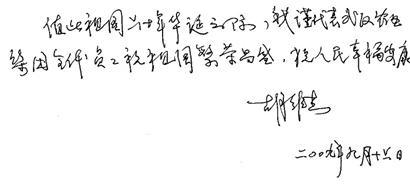 值此祖国六十年华诞之际，我谨代表武汉
集团全体员工祝祖国繁荣昌盛，祝人民幸福安康
胡
二00九年九月十六日